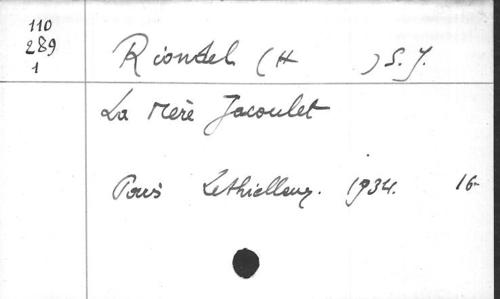 110
289
1
Riondel (H ) S. J.
La Mère Jacoulet
Paris Lethielleux. 1934. 16-